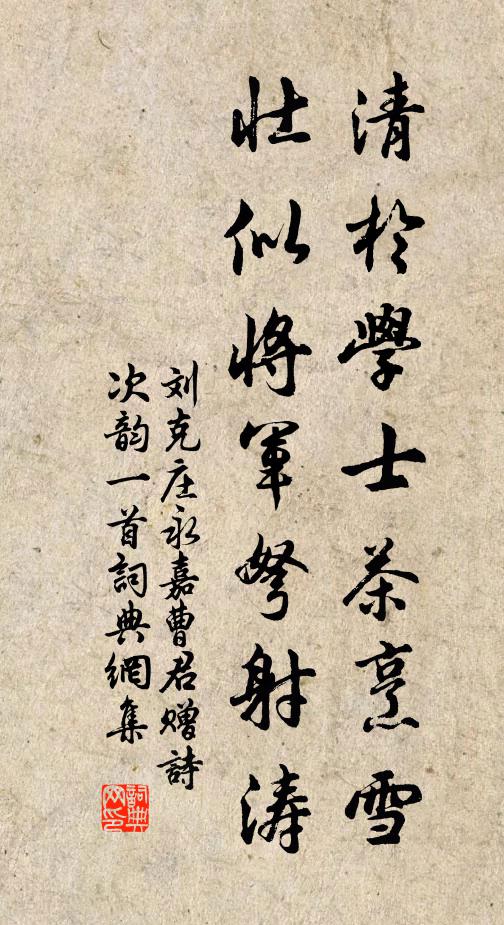 清於學士茶烹雪
壯似將軍弩射涛
刘克庄永嘉曹君赠詩
次韵一首詞典網集
詞典
网印